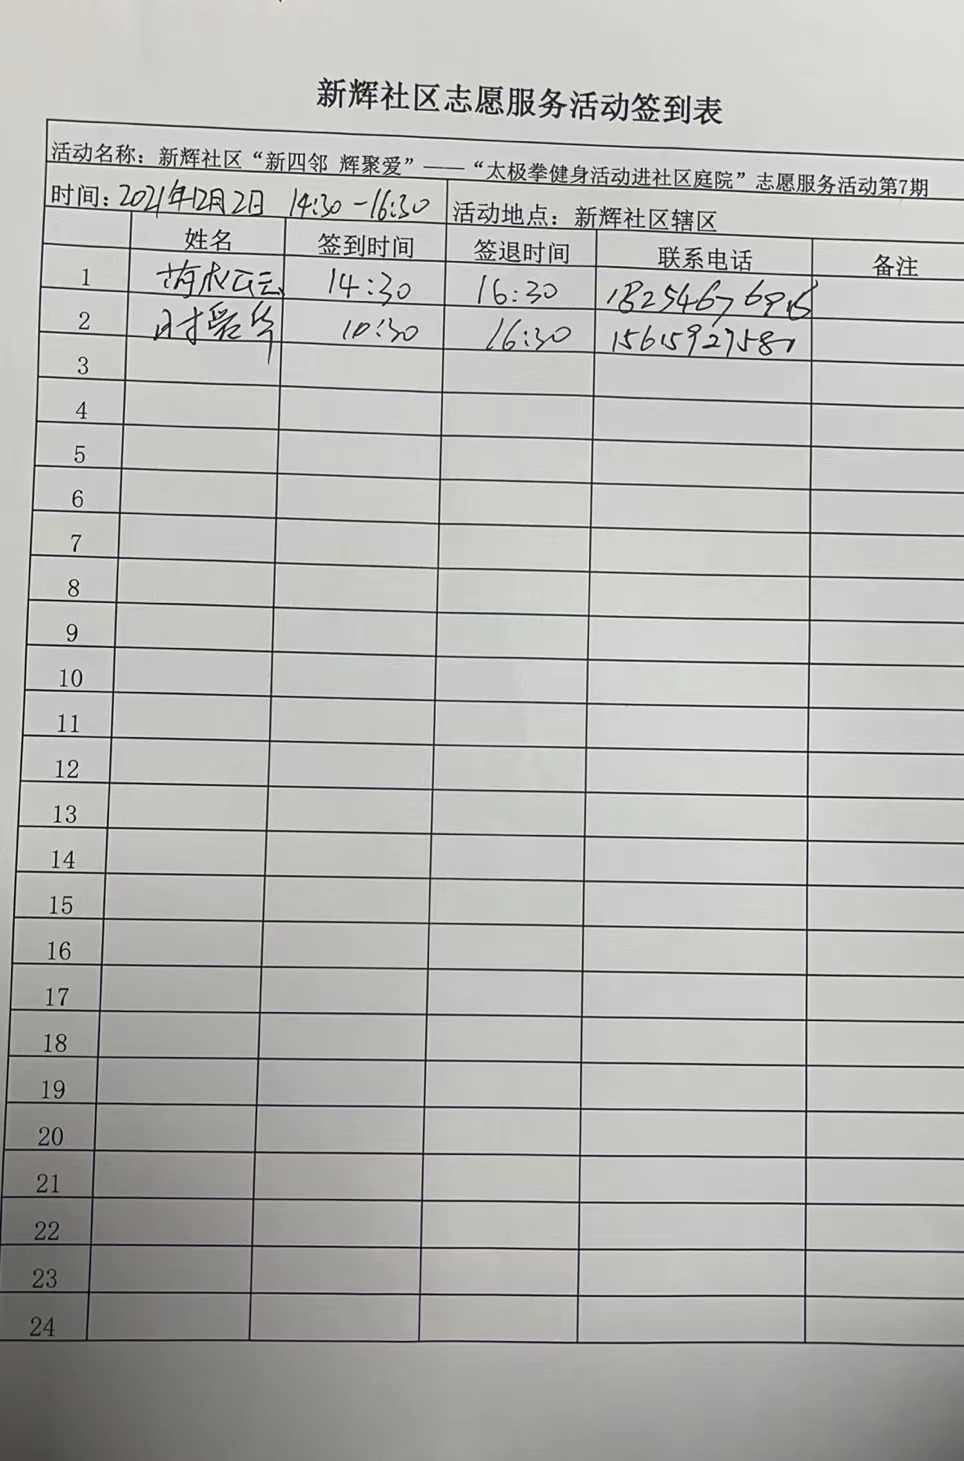 新辉社区志愿服务活动签到表
活动名称：新辉社区“新四邻 辉聚爱”——“太极拳健身活动进社区庭院”志愿服务活动第7期
时间：2021年12月2日 14:30-16:30 活动地点：新辉社区辖区
姓名 签到时间 签退时间 联系电话 备注
1 14:30 16:30
2 时爱华 10:30 16:30
3
4
5
6
7
8
9
10
11
12
13
14
15
16
17
18
19
20
21
22
23
24